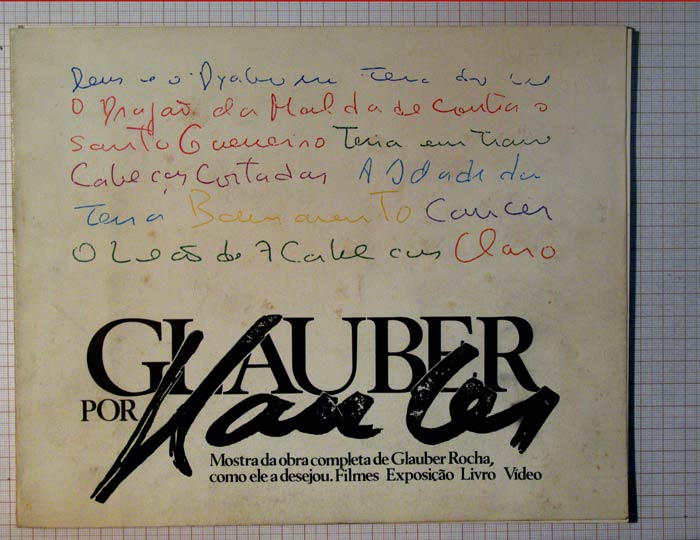 Deus e o Dyabo na Terra do sol
O Dragão da Maldade contra o
Santo Guerreiro Terra em transe
Cabeças Cortadas A Idade da
Terra Barravento Cancer
O Leão de 7 Cabeças Claro
GLAUBER
POR Glauber
Mostra da obra completa de Glauber Rocha,
como ele a desejou. Filmes Exposição Livro Vídeo